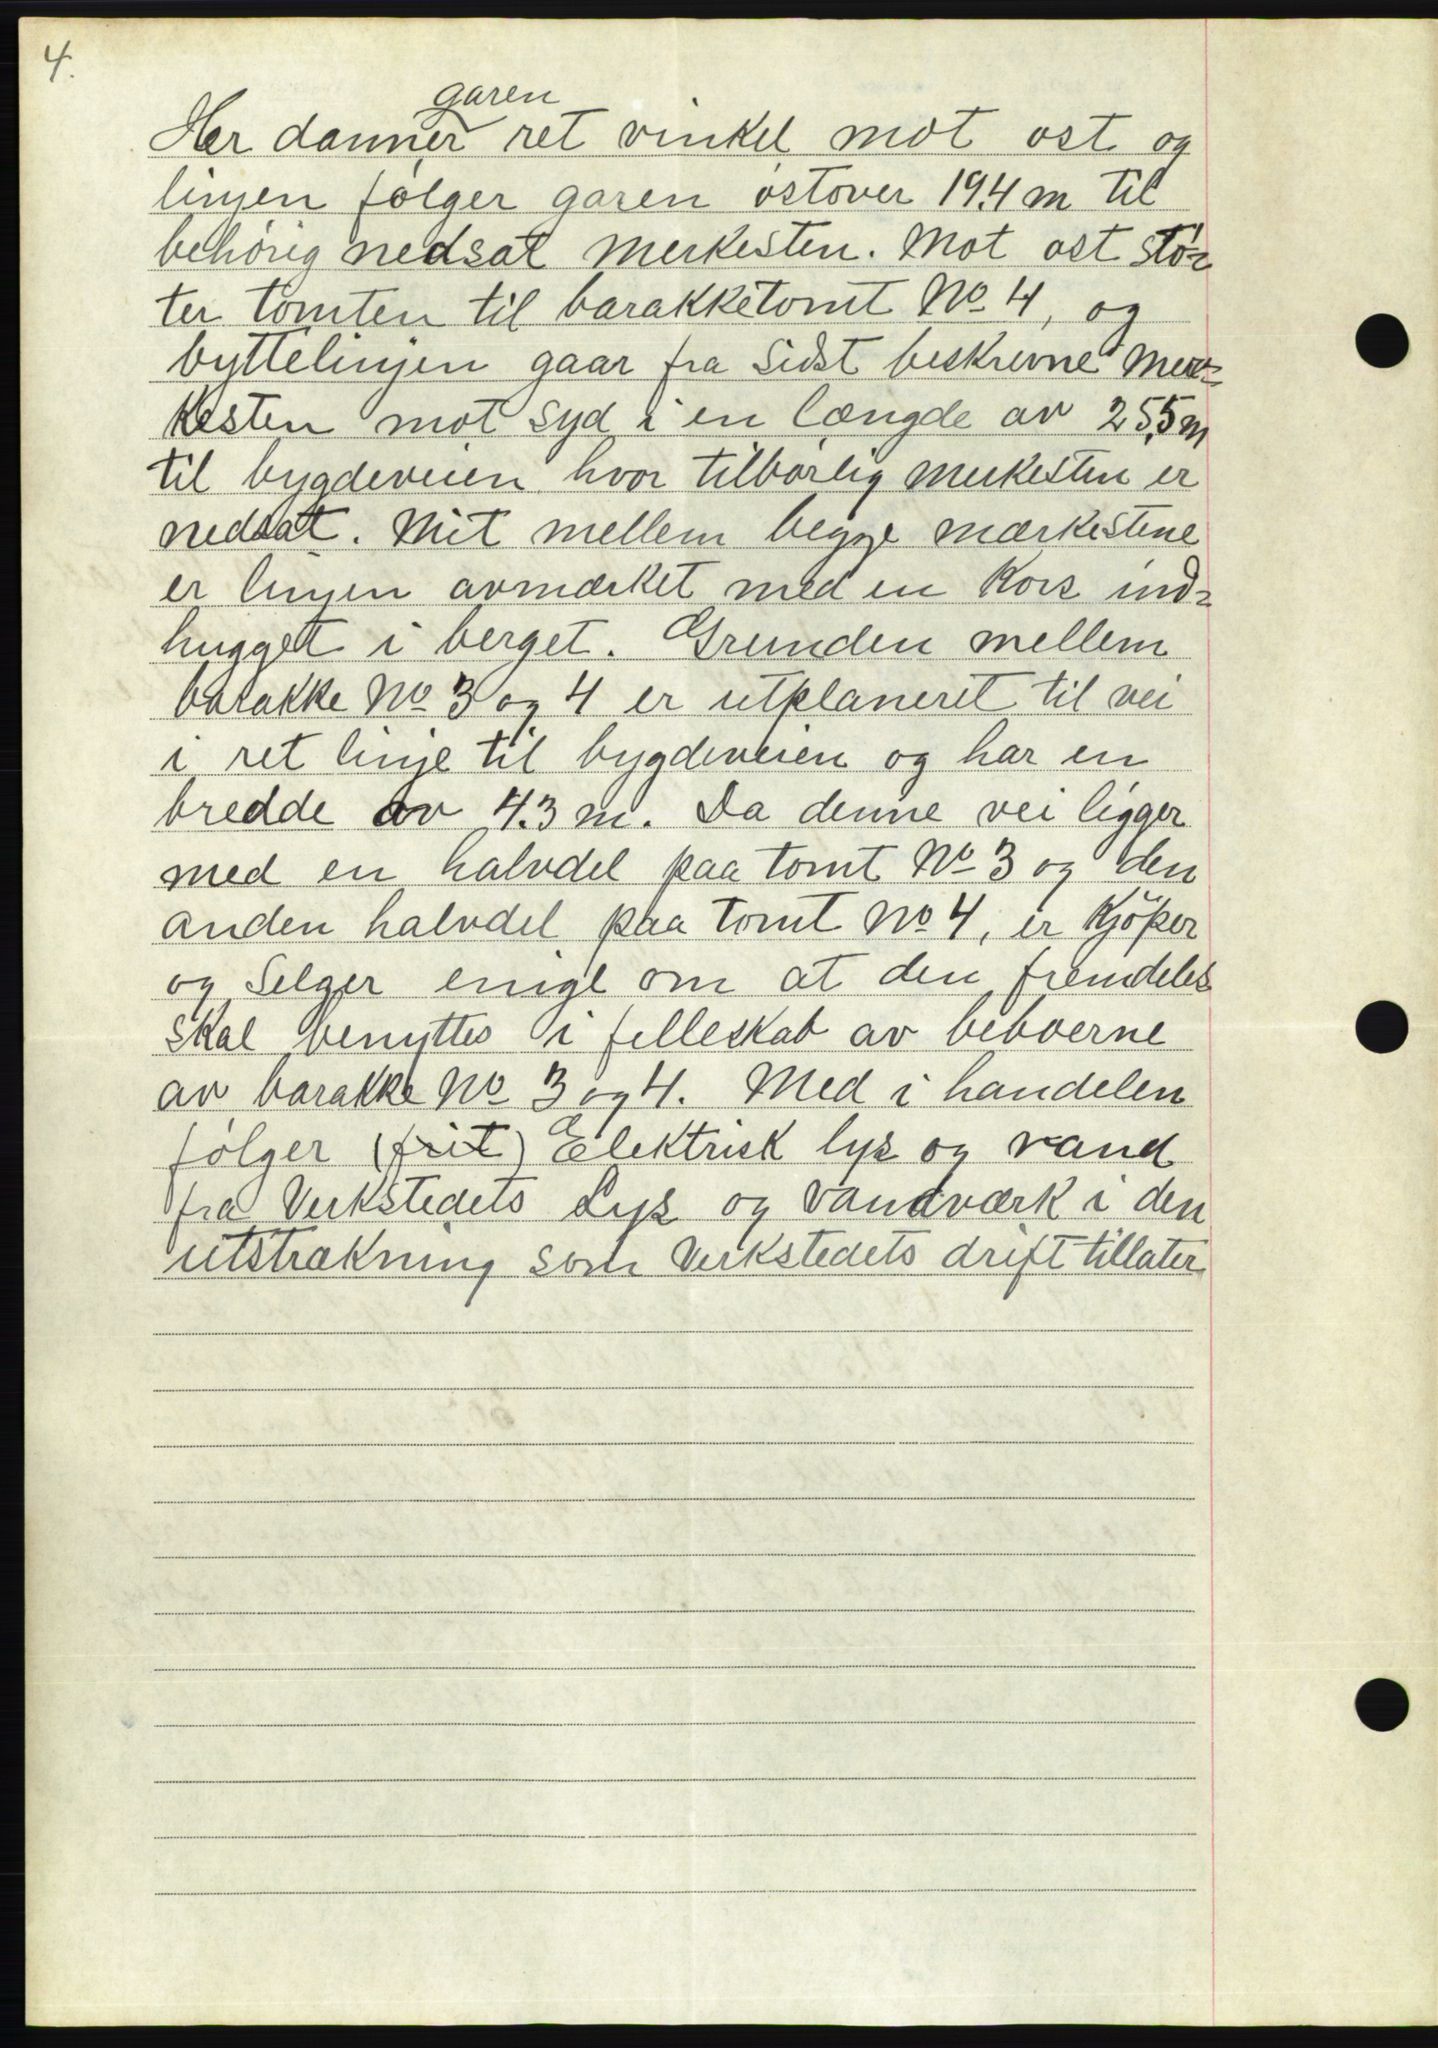 4.
garen
Her danner ret vinkel mot ost og
linjen følger garen østover 19.4 m til
behørig nedsat merkesten. Mot ost stö-
ter tomten til barakketomt No 4, og
byttelinjen gaar fra sidst beskrevne mer-
kesten mot syd i en længde av 25,5 m
til bygdeveien hvor tilbørlig merkesten er
nedsat. Mit mellem begge mærkestene
er linjen avmærket med en Kors ind-
hugget i berget. Grunden mellem
barakke No 3 og 4 er utplaneret til vei
i ret linje til bygdeveien og har en
bredde av 4.3 m. Da denne vei ligger
med en halvdel paa tomt No 3 og den
anden halvdel paa tomt No 4, er Kjöper
og Selger enige om at den fremdeles
skal benyttes i felleskab av beboerne
av barakke No 3 og 4. Med i handelen
følger (frit) Elektrisk lys og vand
fra Verkstedets Lys og vandværk i den
utstrækning som Verkstedets drift tillater